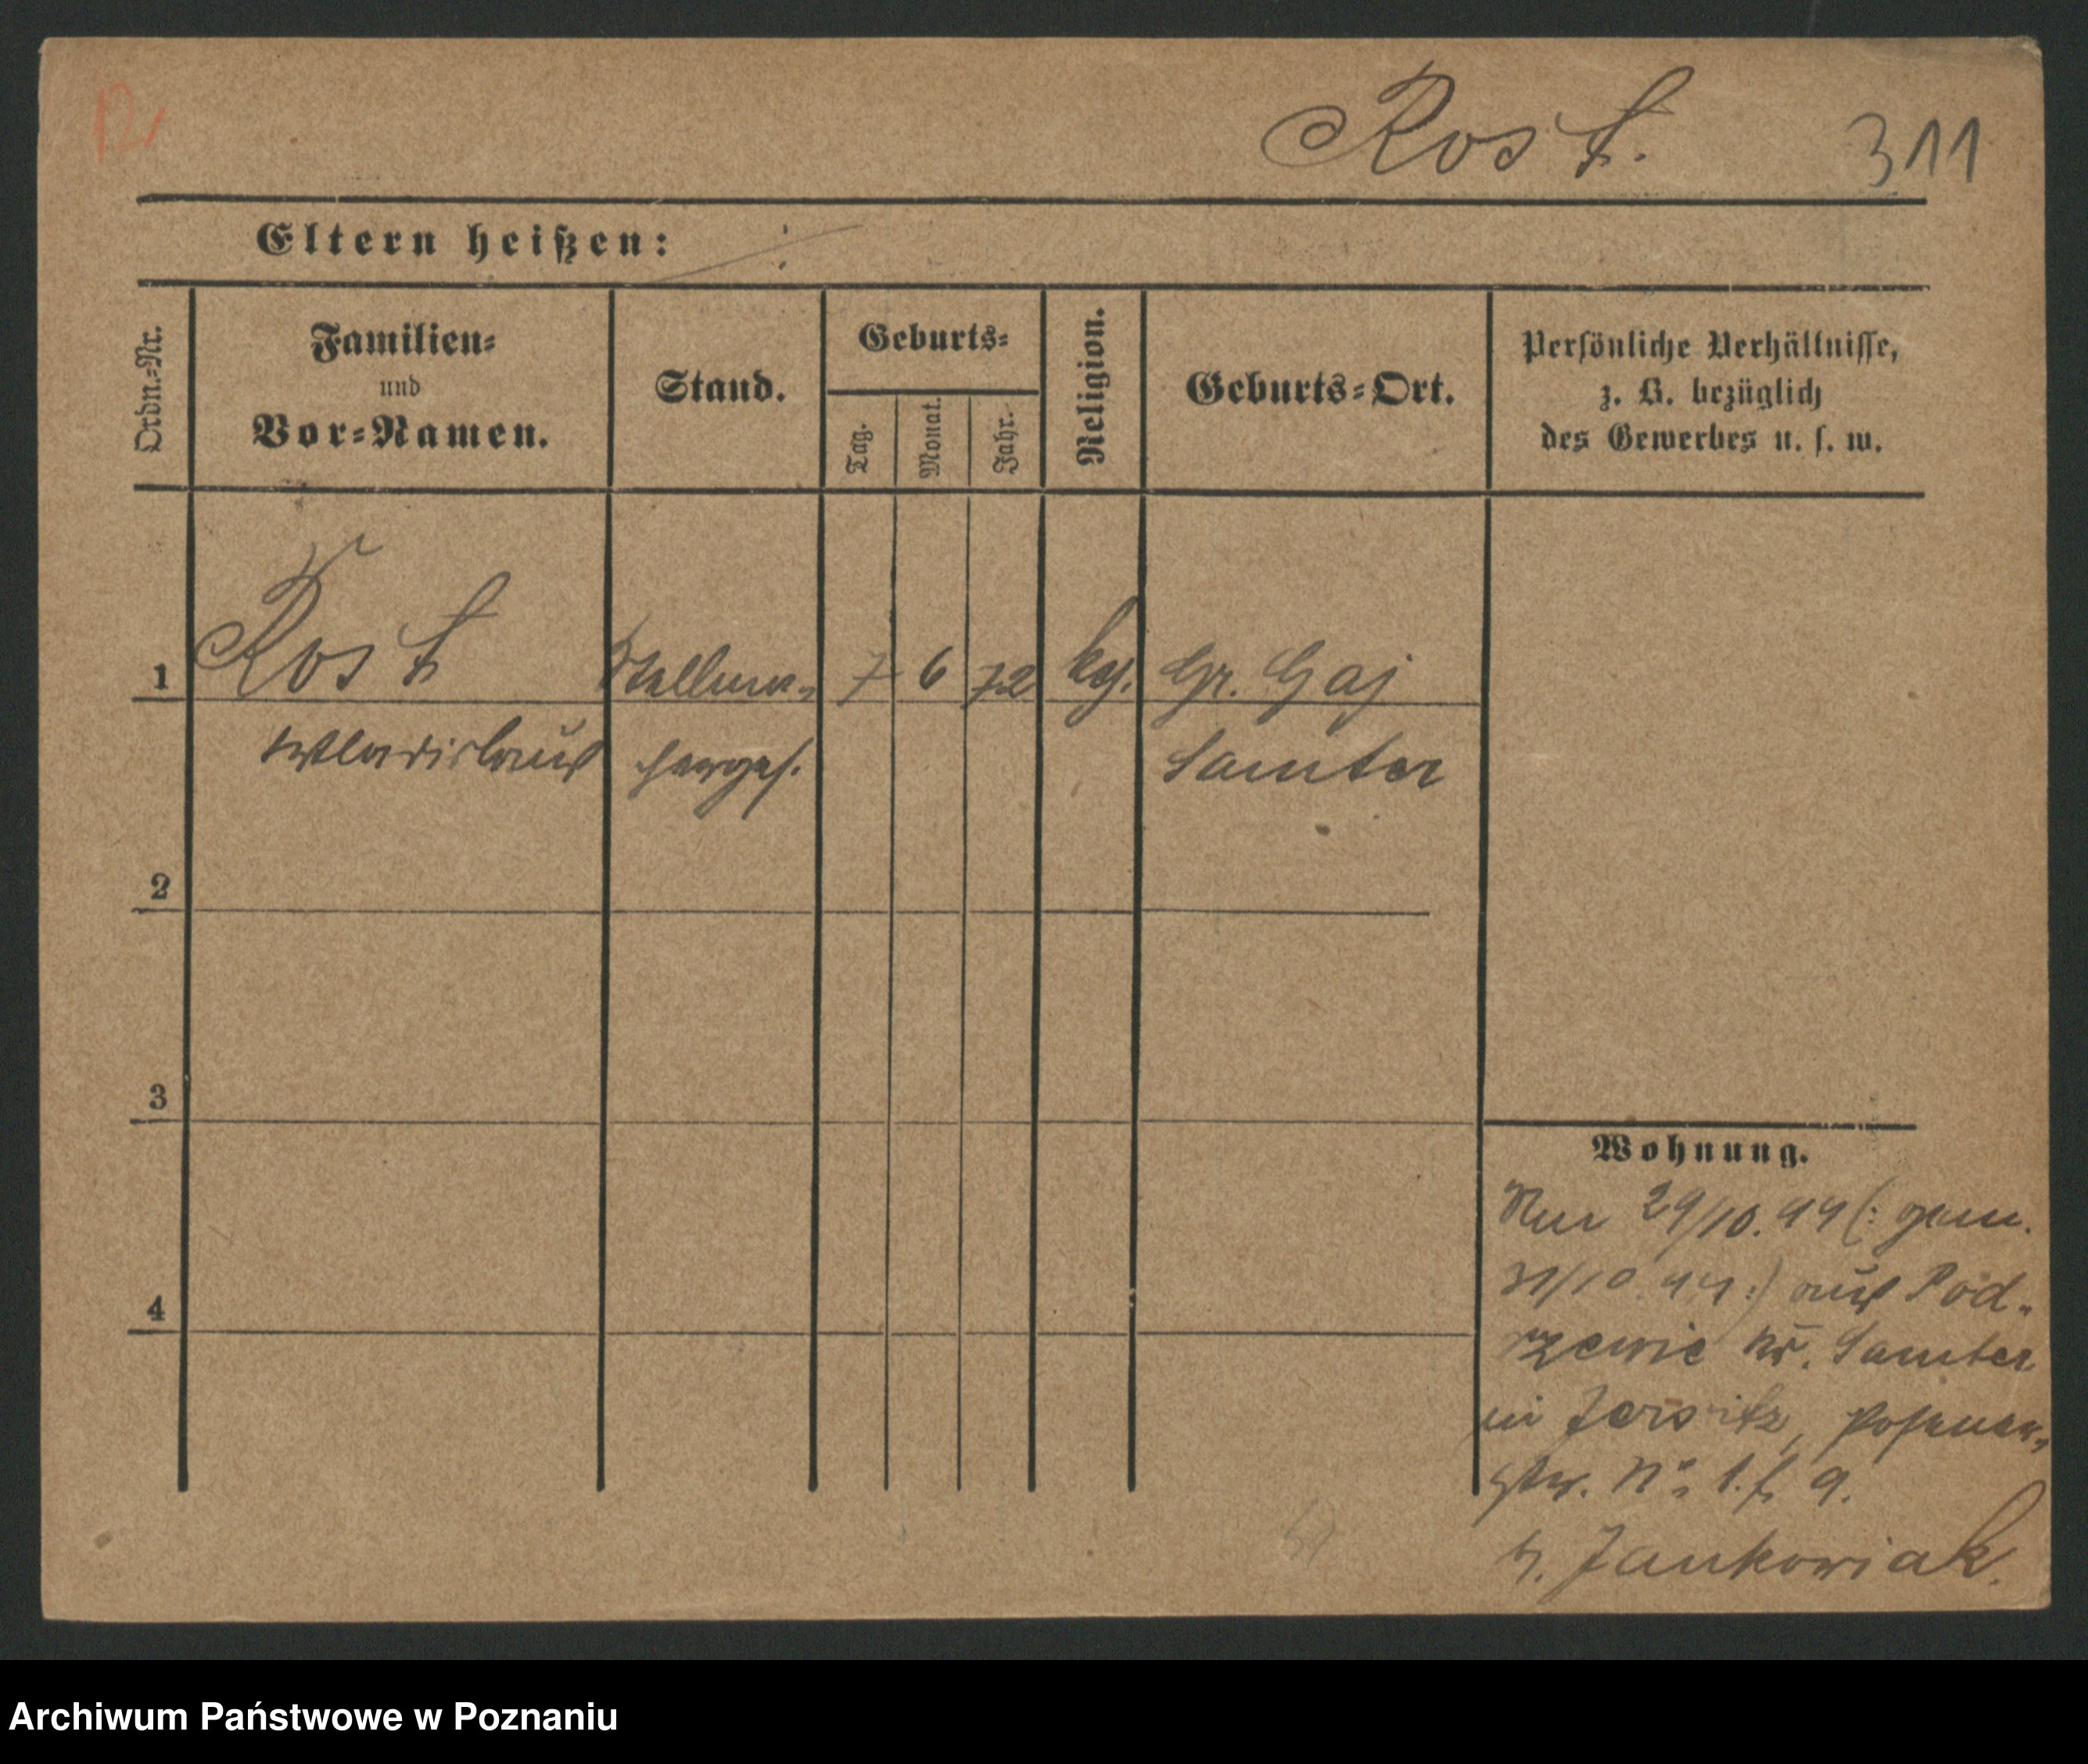 Rost. 311
Eltern heißen: :
Ordn.-Nr.
Familien-
und
Vor-Namen.
Stand.
Geburts-
Tag.
Monat.
Jahr.
Religion.
Geburts-Ort.
Persönliche Verhältnisse,
z. B. bezüglich
des Gewerbes u. s. w.
1 Rost 7 6 72 kath. Gr. Gaj
Wladislaus Samter
2
3
4
Wohnung.
29/10. 94 (: gem.
31/10. 94 :) aus Pod-
rzewie Kr. Samter
in Jersitz, Posener-
str. No 1. 9.
b. Jankowiak.
Archiwum Państwowe w Poznaniu